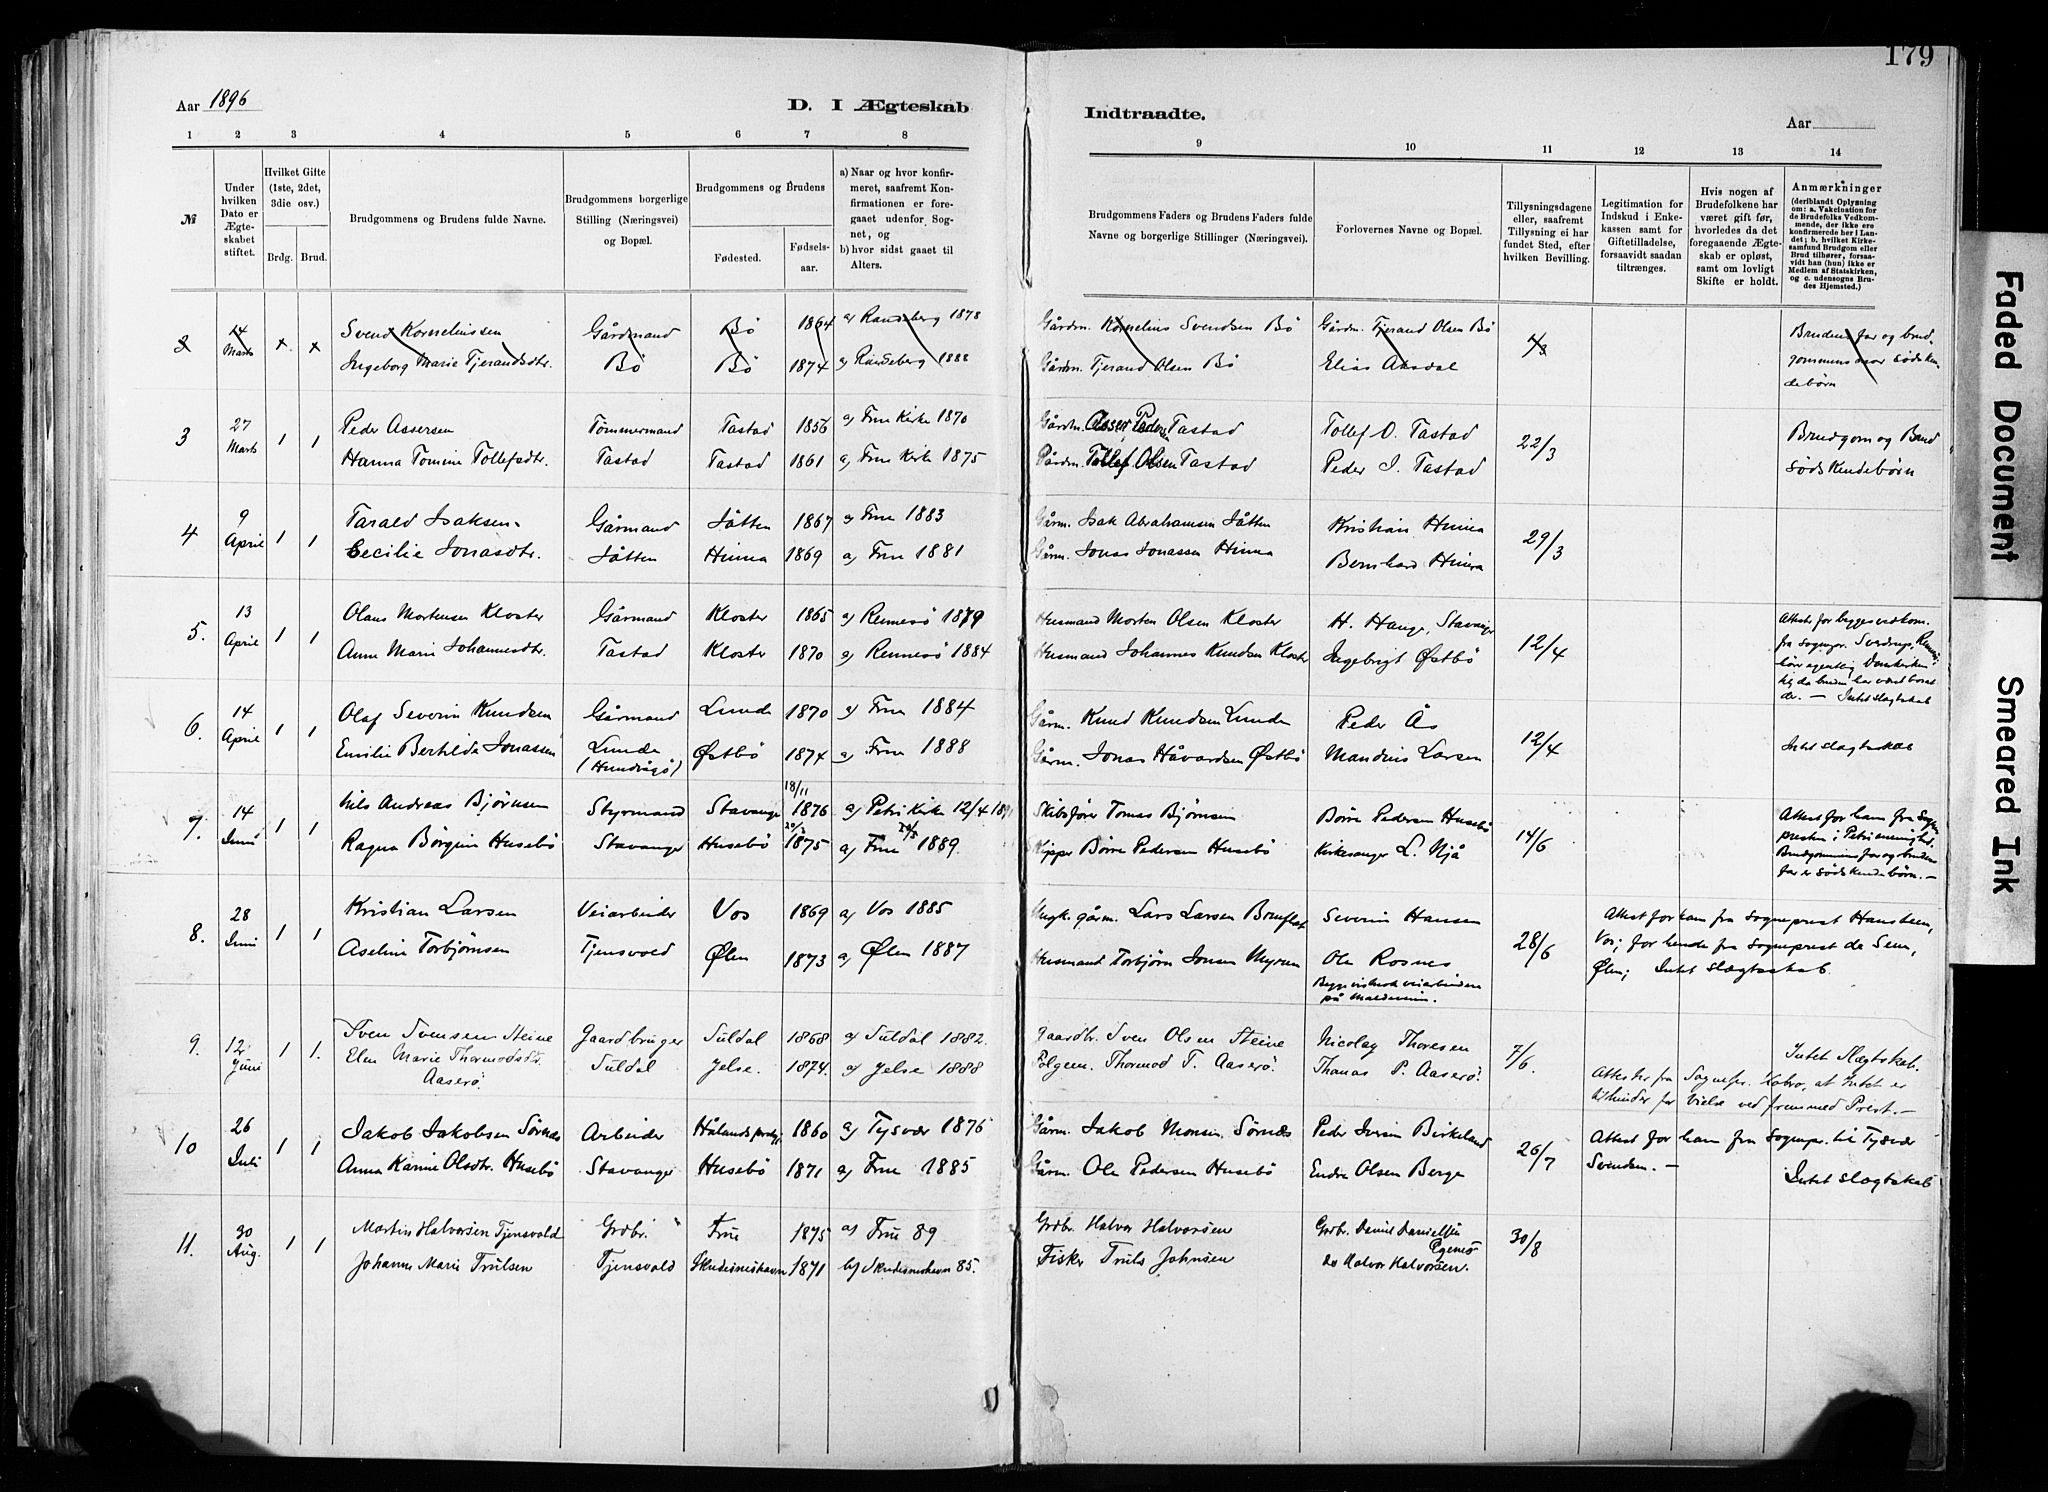 179
Aar 1896
D. I Ægteskab
Indtraadte.
Aar
1 2 3 4 5 6 7 8
9 10 11 12 13 14
№
Under hvilken Dato er Ægteskabet stiftet.
Hvilket Gifte (1ste, 2det, 3die osv.)
Brdg. Brud.
Brudgommens og Brudens fulde Navne.
Brudgommens borgerlige Stilling (Næringsvei) og Bopæl.
Brudgommens og Brudens
Fødested.
Fødselsaar.
a) Naar og hvor konfirmeret, saafremt Konfirmationen er foregaaet udenfor Sognet, og
b) hvor sidst gaaet til Alters.
Brudgommens Faders og Brudens Faders fulde Navne og borgerlige Stillinger (Næringsvei).
Forlovernes Navne og Bopæl.
Tillysningsdagene eller, saafremt Tillysning ei har fundet Sted, efter hvilken Bevilling.
Legitimation for Indskud i Enkekassen samt for Giftetilladelse, forsaavidt saadan tiltrænges.
Hvis nogen af Brudefolkene har været gift før, hvorledes da det foregaaende Ægteskab er opløst, samt om lovligt Skifte er holdt.
Anmærkninger (deriblandt Oplysning om: a. Vakcination for de Brudefolks Vedkommende, der ikke ere konfirmerede her i Landet; b. hvilket Kirkesamfund Brudgom eller Brud tilhører, forsaavidt han (hun) ikke er Medlem af Statskirken, og c. udensogns Brudes Hjemsted.)
2 14 Marts Svend Kornelinssen Gårdmand Bø 1864 a) Randeberg 1878 Gårdm. Kornelius Svendsen Bø Gårdm. Tjerand Olsen Bø Brudens far og brud
Ingeborg Marie Tjerandsdtr. Bø Bø 1874 a) Randeberg 1888 Gårdm. Tjerand Olsen Bø Elias Aksdal gommens mor sødsken
debørn
3 27 Marts 1 1 Peder Assersen Tømmermand Tastad 1856 a) Frue Kirke 1870 Gårdm. Asser Peders. Tastad Tollef O. Tastad 22/3 Brudgom og Brud
Hanna Tomine Tollefsdtr. Tastad Tastad 1861 a) Frue Kirke 1875 Gårdm. Tollef Olsen Tastad Peder I. Tastad sødskendebørn
4 9 April 1 1 Tarald Isaksen Gårmand Jåtten 1867 a) Frue 1883 Gårm. Isak Abrahamsen Jåtten Kristian Hinna 29/3
Cecilie Jonasdtr. Jåtten Hinna 1869 a) Frue 1881 Gårm. Jonas Jonassen Hinna Bernhard Hinna
5. 13 April 1 1 Olaus Mortensen Kloster Gårmand Kloster 1865 a) Rennesø 1879 Husmand Morten Olsen Kloster H. Hauge, Stavanger 12/4 Attest for begges vedkom.
Anne Marie Johannesdtr. Tastad Kloster 1870 a) Rennesø 1884 Husmand Johannes Knudsen Kloster Ingebrigt Østbø fra Sognepr. Sverdrup,
der. — Intet slagtskab
6. 14 April 1 1 Olaf Severin Knudsen Gårmand Lunde 1870 a) Frue 1884 Gårm. Knud Knudsen Lunde Peder Ås 12/4
Emilie Bertilde Jonassen Lunde Østbø 1874 a) Frue 1888 Gårm. Jonas Håvardsen Østbø Mandius Larsen Intet slagtskab
(Hundvågø)
7. 14 Juni 1 1 Nils Andreas Bjørnsen Styrmand Stavanger 18/11 1876 a) Petri Kirke 12/4 1891 Skibsfører Tomas Bjørnsen Børre Pedersen Husebø 14/6 Attest for ham fra Sogne
presten i Petri menighed,
Ragna Børgine Husebø Stavanger Husebø 1875 a) Frue 1889. Skipper Børre Pedersen Husebø Kirkesanger L. Njå Brudgommens far og brudens
far er sødskendebørn. —
8. 28 Juni 1 1 Kristian Larsen Veiarbeider Vos 1869 a) Vos 1885 Ungk. gårm. Lars Larsen Severin Hansen 28/6 Attest for ham fra Sogneprest Hansteen,
Vos; for hende fra Sogneprest de Seue,
Aseline Torbjørnsen Tjensvold Ølen 1873 a) Ølen 1887 Husmand Torbjørn Jonsen Myren Ole Rosnes Ølen; Intet slægtskab.
Begge veiarbeidere
på Malde
9. 12 Juni 1 1. Sven Svensen Steine Gaardbruger Suldal 1868 a) Suldal 1882. Gaardbr. Sven Olsen Steine Nicolay Thoresen 7/6. Intet Slægtskab.
Elen Marie Thormodsdtr. Suldal Jelse. 1874. a) Jelse 1888 Thormod T. Aaserø. Thomas P. Aaserø. Attester fra Sognepr. at Intet er
Aaserø. til hinder for Vielse ved fremmed Prest. —
10 26 Juli 1 1 Jakob Jakobsen Sørnes Arbeider Hålands prstgj. 1860 a) Tysvær 1876 Gårm. Jakob Monsen Sørnæs Peder Iversen Birkeland 26/7 Attest for ham fra Sognepr. til Tysvær
Anna Karine Olsdtr. Husebø Stavanger Husebø 1871 a) Frue 1885 Gårm. Ole Pedersen Husebø Endre Olsen Berge Svendsen. — Intet slagtskab
11. 30 Aug. 1 1 Martin Halvorsen Tjensvold Grdbr. Frue 1875 a) Frue 89 Grdbr. Halvor Halvorsen Grdbr. Daniel Danielsen 30/8
Egenes
Johanne Marie Trulsen Tjensvold Skudesneshavn 1871 b) Skudesneshavn 85. Fisker Truls Johnsen do Halvor Halvorsen.
Faded Document
Smeared Ink